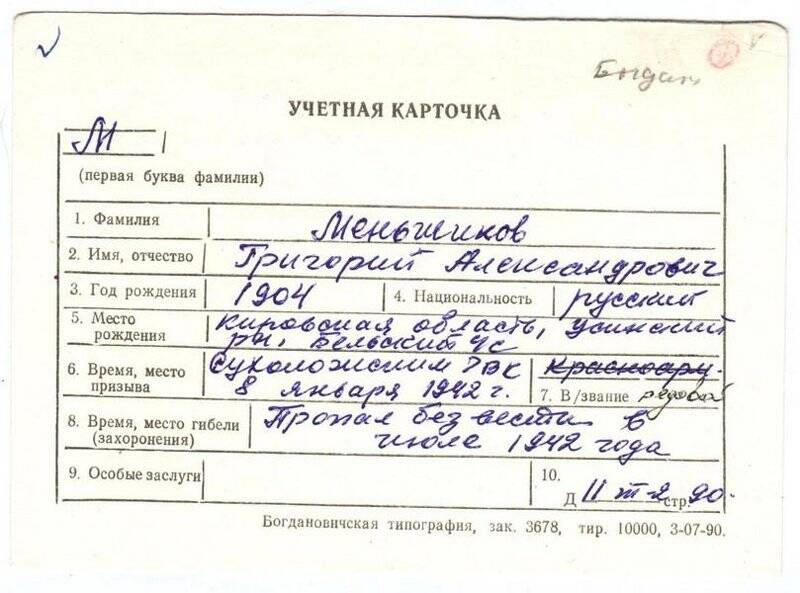 УЧЕТНАЯ КАРТОЧКА
М
(первая буква фамилии)
1. Фамилия Меньшиков
2. Имя, отчество Григорий Александрович
3. Год рождения 1904 4. Национальность русский
5. Место рождения Кировская область,
рн, Бельский с/с
6. Время, место призыва Сухоложским РВК
8 января 1942 г.
Красноарм.
7. В/звание рядовой
8. Время, место гибели (захоронения) Пропал без вести в
июле 1942 года
9. Особые заслуги
10.
Д II т-2 стр. 90.
Богдановичская типография, зак. 3678, тир. 10000, 3-07-90.